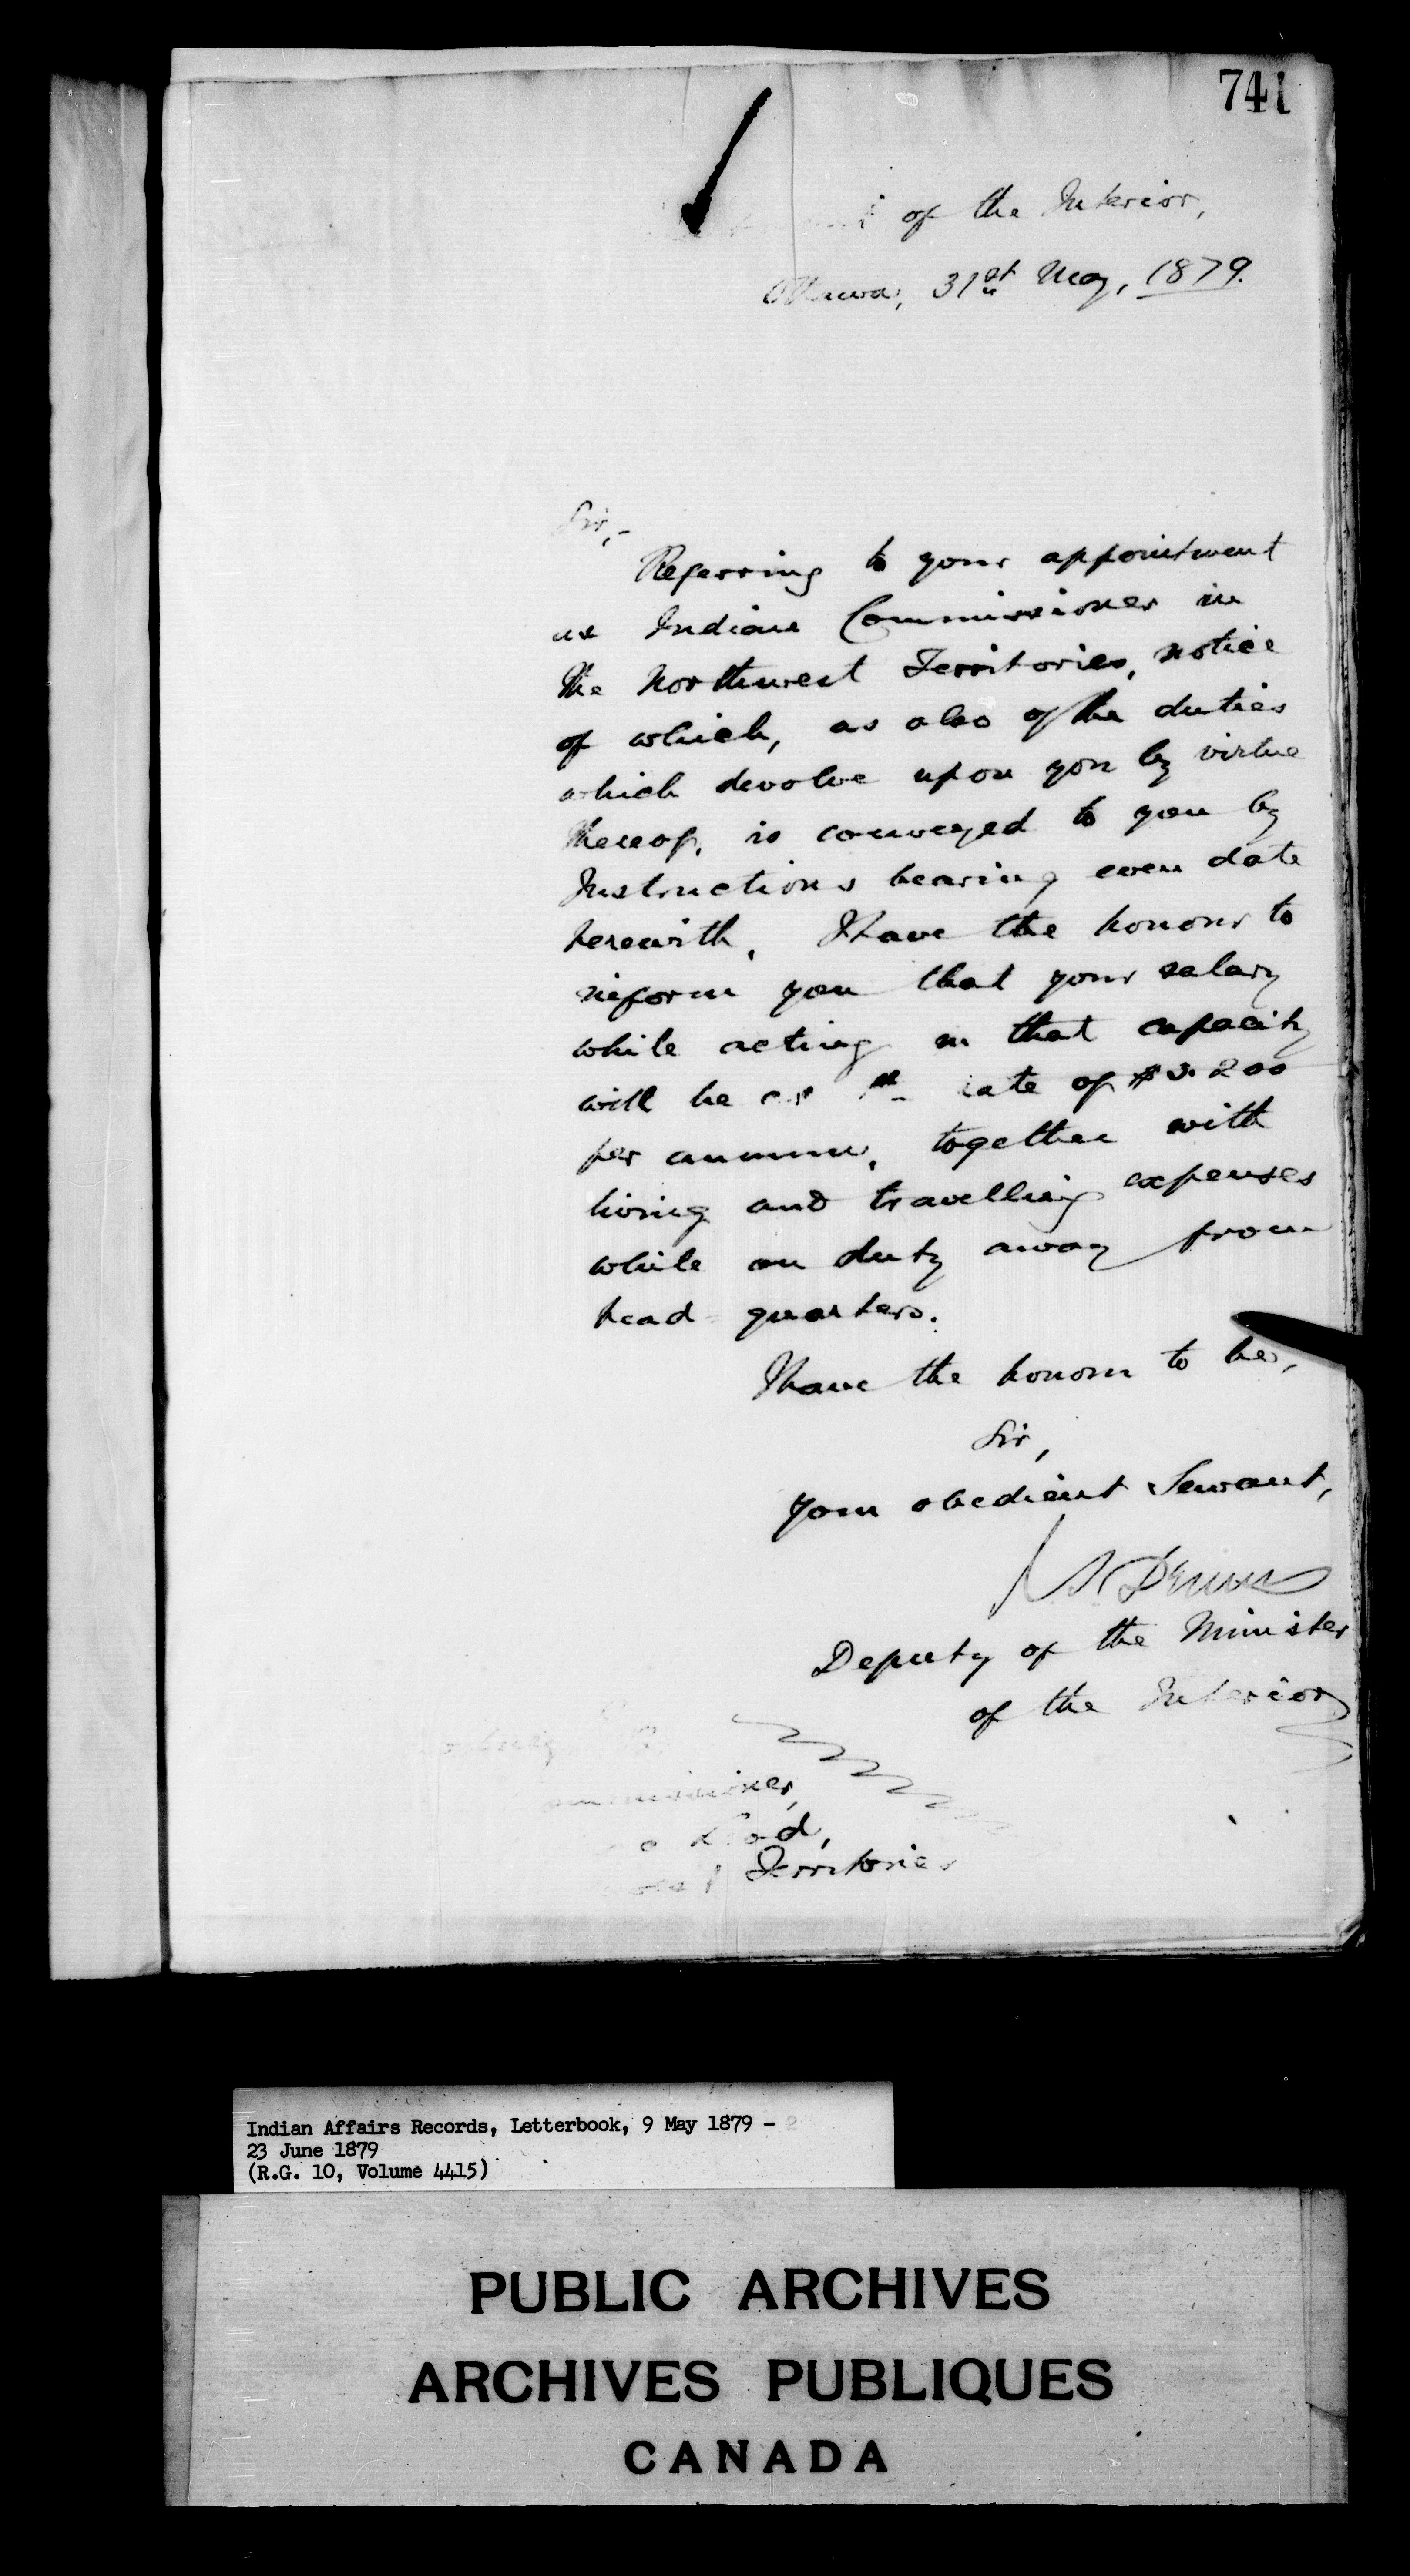 741
of the Interior,
Ottawa, 31st May, 1879.
Sir,-
Referring to your appointment
as Indian Commissioner in
the Northwest Territories, notice
of which, as also of the duties
which devolve upon you by virtue
thereof, is conveyed to you by
Instructions bearing even date
herewith, I have the honour to
inform you that your salary
while acting in that capacity
will be at the rate of $3.200
per annum, together with
living and travelling expenses
while on duty away from
head-quarters.
I have the honour to be,
Sir,
Your obedient Servant,
J. S. Dennis
Deputy of the Minister
of the Interior
Territories
Indian Affairs Records, Letterbook, 9 May 1879 -
23 June 1879
(R.G. 10, Volume 4415)
PUBLIC ARCHIVES
ARCHIVES PUBLIQUES
CANADA